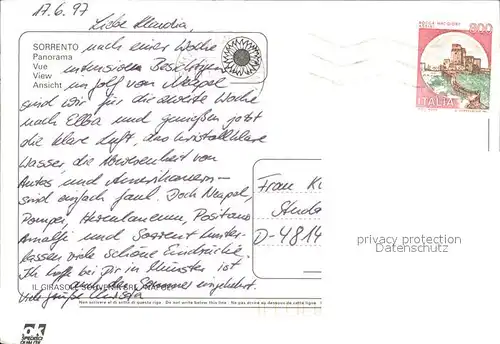 17.6.97
Liebe Klaudia,
nach einer Woche
intensiven Besichtigens
im Golf von Neapel
sind wir für die zweite Woche
nach Elba und genießen jetzt
die klare Luft, das kristallklare
Wasser, die Abwesenheit von
Autos und Amerikanern –
sind einfach faul. Doch Neapel,
Pompei, Herculaneum, Positano
Amalfi und Sorrent hinter-
lassen viele schöne Eindrücke.
Ich hoffe bei Dir in Münster ist
auch der Sommer eingekehrt.
Viele Grüße
SORRENTO
Panorama
Vue
View
Ansicht
IL GIRASOLE SOUVENIR SRL NAPOLI
ROCCA MAGGIORE
ASSISI
800
ITALIA
Frau
D-4814
privacy protection
Datenschutz
Non scrivere al di sotto di questa riga - Do not write below this line - Ne pas écrire au dessous de cette ligne
ok